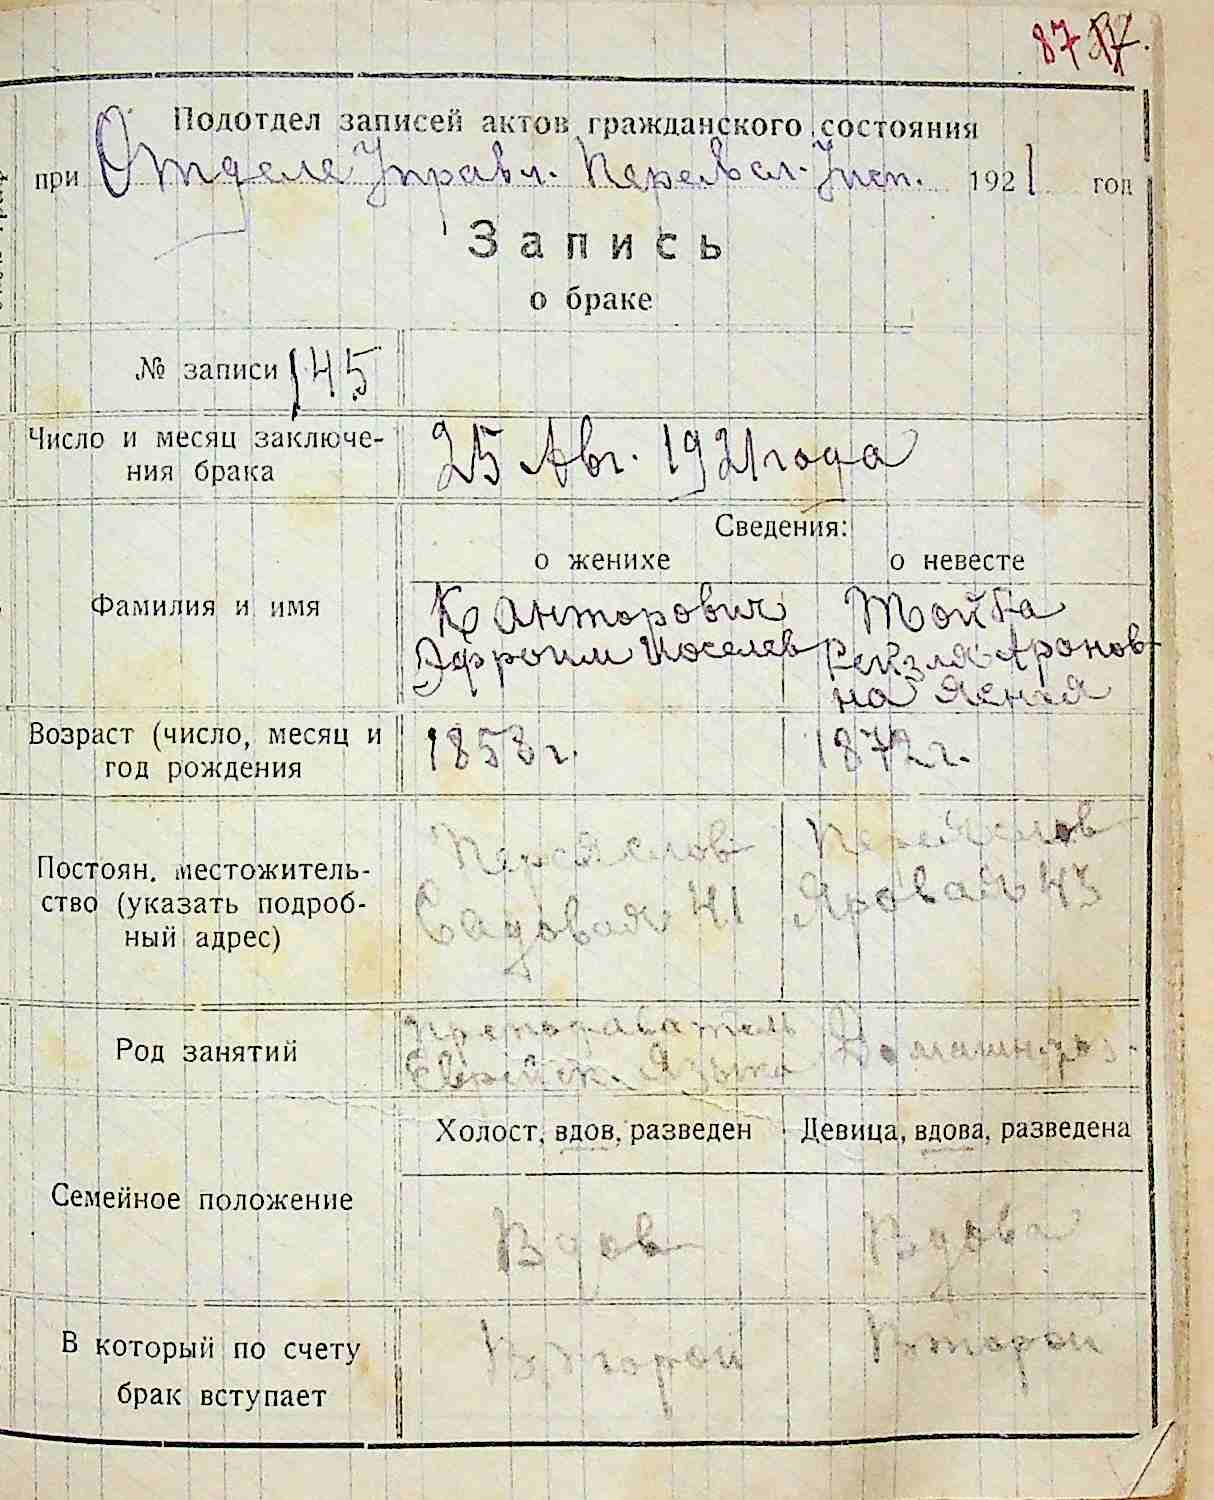 87
Подотдел записей актов гражданского состояния
при Отделе Управл. 1921 год
Запись
о браке
№ записи 145
Число и месяц заключе-
ния брака
25 Авг. 1921 года
Сведения:
о женихе о невесте
Фамилия и имя
Канторович Тойба
Эфроим Иоселев Рейзля Аронов-
на
Возраст (число, месяц и
год рождения
1858 г. 1872 г.
Постоян. местожитель-
ство (указать подроб-
ный адрес)
Переяслов Переяслов
Садовая 41 Яровая 43
Род занятий
Преподаватель Домашн. хоз.
Еврейск. Языка
Холост, вдов, разведен Девица, вдова, разведена
Семейное положение
Вдов Вдова
В который по счету
брак вступает
Второй Второй